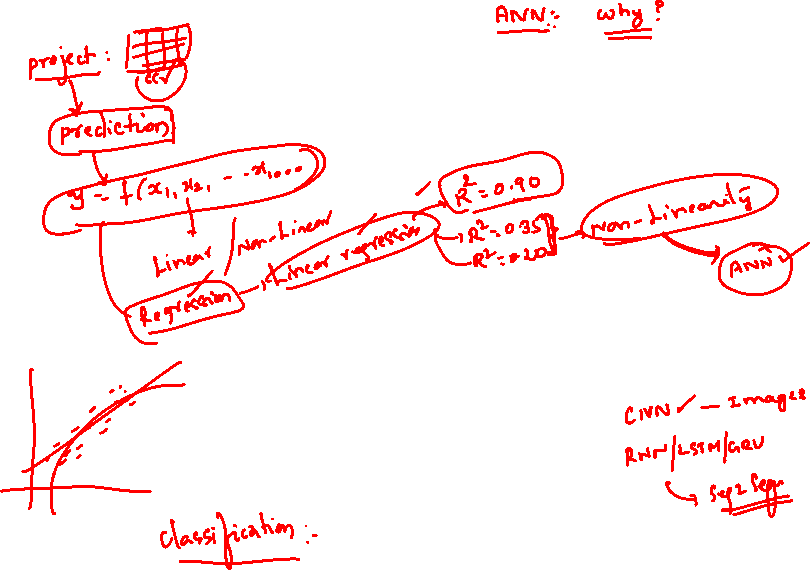 ANN:- why?
project:
csv
prediction
y = f(x1, x2, - - . x1, ...
Linear
Non-Linear
Regression
Linear regression
R² = 0.90
R² = 0.35
R² = 0.20
Non-Linearity
ANN
CNN ✓ - Images
RNN/LSTM/GRU
→ Seq2Seq
classification:-